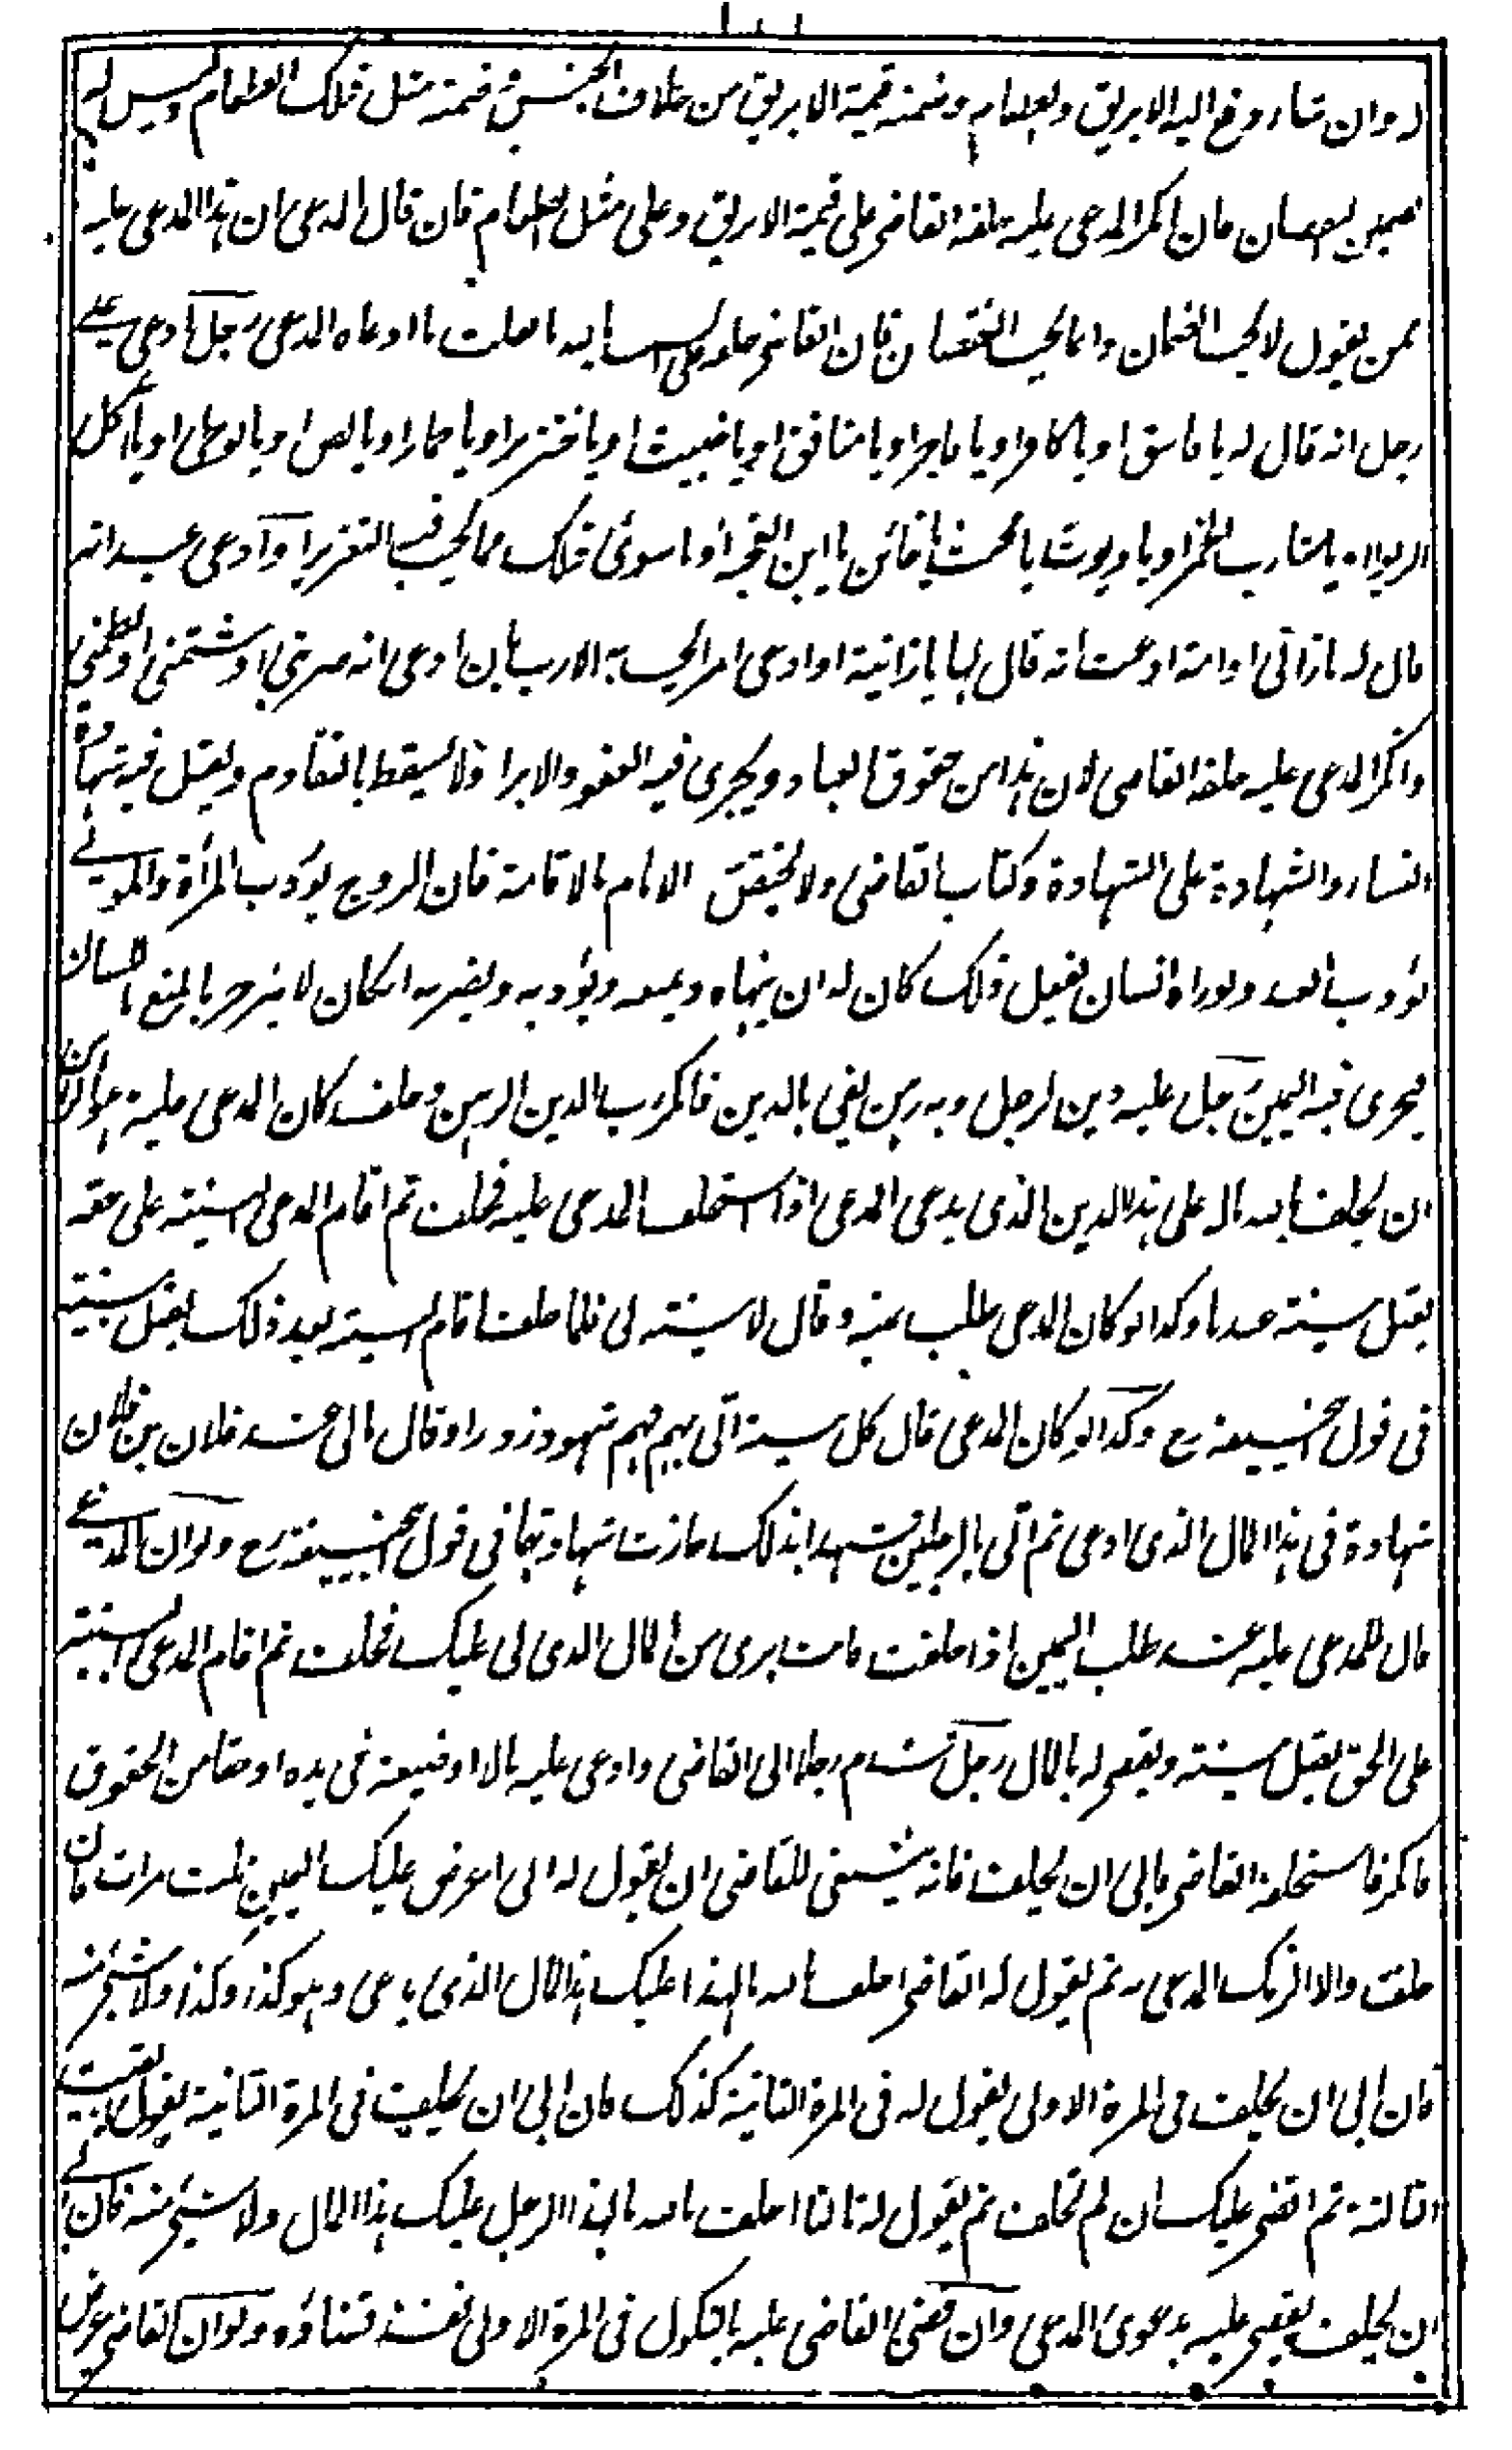 له وان شاء دفع اليه الابريق والطعام وضمنه قيمة الابريق من خلاف الجنس وقيمة مثل ذلك الطعام وليس له
تضمين النقصان فان انكر المدعى عليه حلفه القاضى على قيمة الابريق وعلى مثل الطعام فان قال المدعى ان هذا المدعى عليه
ممن يقول لا يجب الضمان وانما يجب النقصان فان القاضى حلفه على السبب بالله ما فعلت ما ادعاه المدعى رجل ادعى على
رجل انه قال له يا فاسق او يا كافر او يا فاجر او يا منافق او يا خبيث او يا خنزير او يا حمار او يا لص او يا لوطى او يا آكل
الربوا او يا شارب الخمر او يا ديوث يا مخنث يا خائن يا ابن القحبة او ما سوى ذلك مما يجب فيه التعزير او ادعى عبد انه
قال له يا زانى او امة ادعت انه قال لها يا زانية او ادعى امرا يجب به الادب بان ادعى انه ضربنى او شتمنى او لطمنى
وانكر المدعى عليه حلفه القاضى لان هذا من حقوق العباد ويجرى فيه العفو والابراء ولا يسقط بالتقادم ويقبل فيه شهادة
النساء والشهادة على الشهادة وكتاب القاضى ولا يختص الامام بالاقامة فان الزوج يؤدب المرأة والمولى
يؤدب العبد ولو راه انسان يفعل ذلك كان له ان ينهاه ويمنعه ويؤدبه ويضربه ان كان لا ينزجر بالمنع باللسان
فيجرى فيه اليمين رجل عليه دين لرجل وبه رهن يفى بالدين فانكر رب الدين الرهن وحلف كان المدعى عليه وهو الراهن
ان يحلف بالله ماله على هذا الدين الذى يدعى المدعى اذا استحلف المدعى عليه فحلف ثم اقام المدعى البينة على حقه
يقبل بينته عندنا وكذا لو كان المدعى طلب يمينه وقال لا بينة لى فلما حلف اقام البينة بعد ذلك يقبل بينته
فى قول ابى حنيفة رح وكذا لو كان المدعى قال كل بينة اتى بهم فهم شهود زور او قال مالى عند فلان بن فلان
شهادة فى هذا المال الذى ادعى ثم اتى بالرجلين فشهدا بذلك جازت شهادتهما فى قول ابى حنيفة رح ولو ان المدعى
قال للمدعى عليه عند طلب اليمين اذا حلفت فانت برى من المال الذى لى عليك فحلف ثم اقام المدعى البينة
على الحق يقبل بينته ويقضى له بالمال رجل قدم رجلا الى القاضى وادعى عليه مالا او ضيعة فى يده او حقا من الحقوق
فانكر فاستحلفه القاضى فابى ان يحلف فانه ينبغى للقاضى ان يقول له انى اعرض عليك اليمين ثلث مرات فان
حلفت والا الزمك المدعى به ثم يقول له القاضى احلف بالله ما لهذا عليك هذا المال الذى يدعى وهو كذا وكذا ولا شىء منه
فان ابى ان يحلف فى المرة الاولى يقول له فى المرة الثانية كذلك فان ابى ان يحلف فى المرة الثانية يقول بقيت
الثالثة ثم اقضى عليك ان لم تحلف ثم يقول له ثالثا احلف بالله ما لهذا الرجل عليك هذا المال ولا شىء منه فان ابى
ان يحلف يقضى عليه بدعوى المدعى وان قضى القاضى عليه بالنكول فى المرة الاولى نفذ قضاؤه ولو ان القاضى عرض